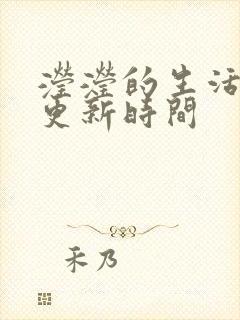 瀅瀅的生活
更新時間
禾乃